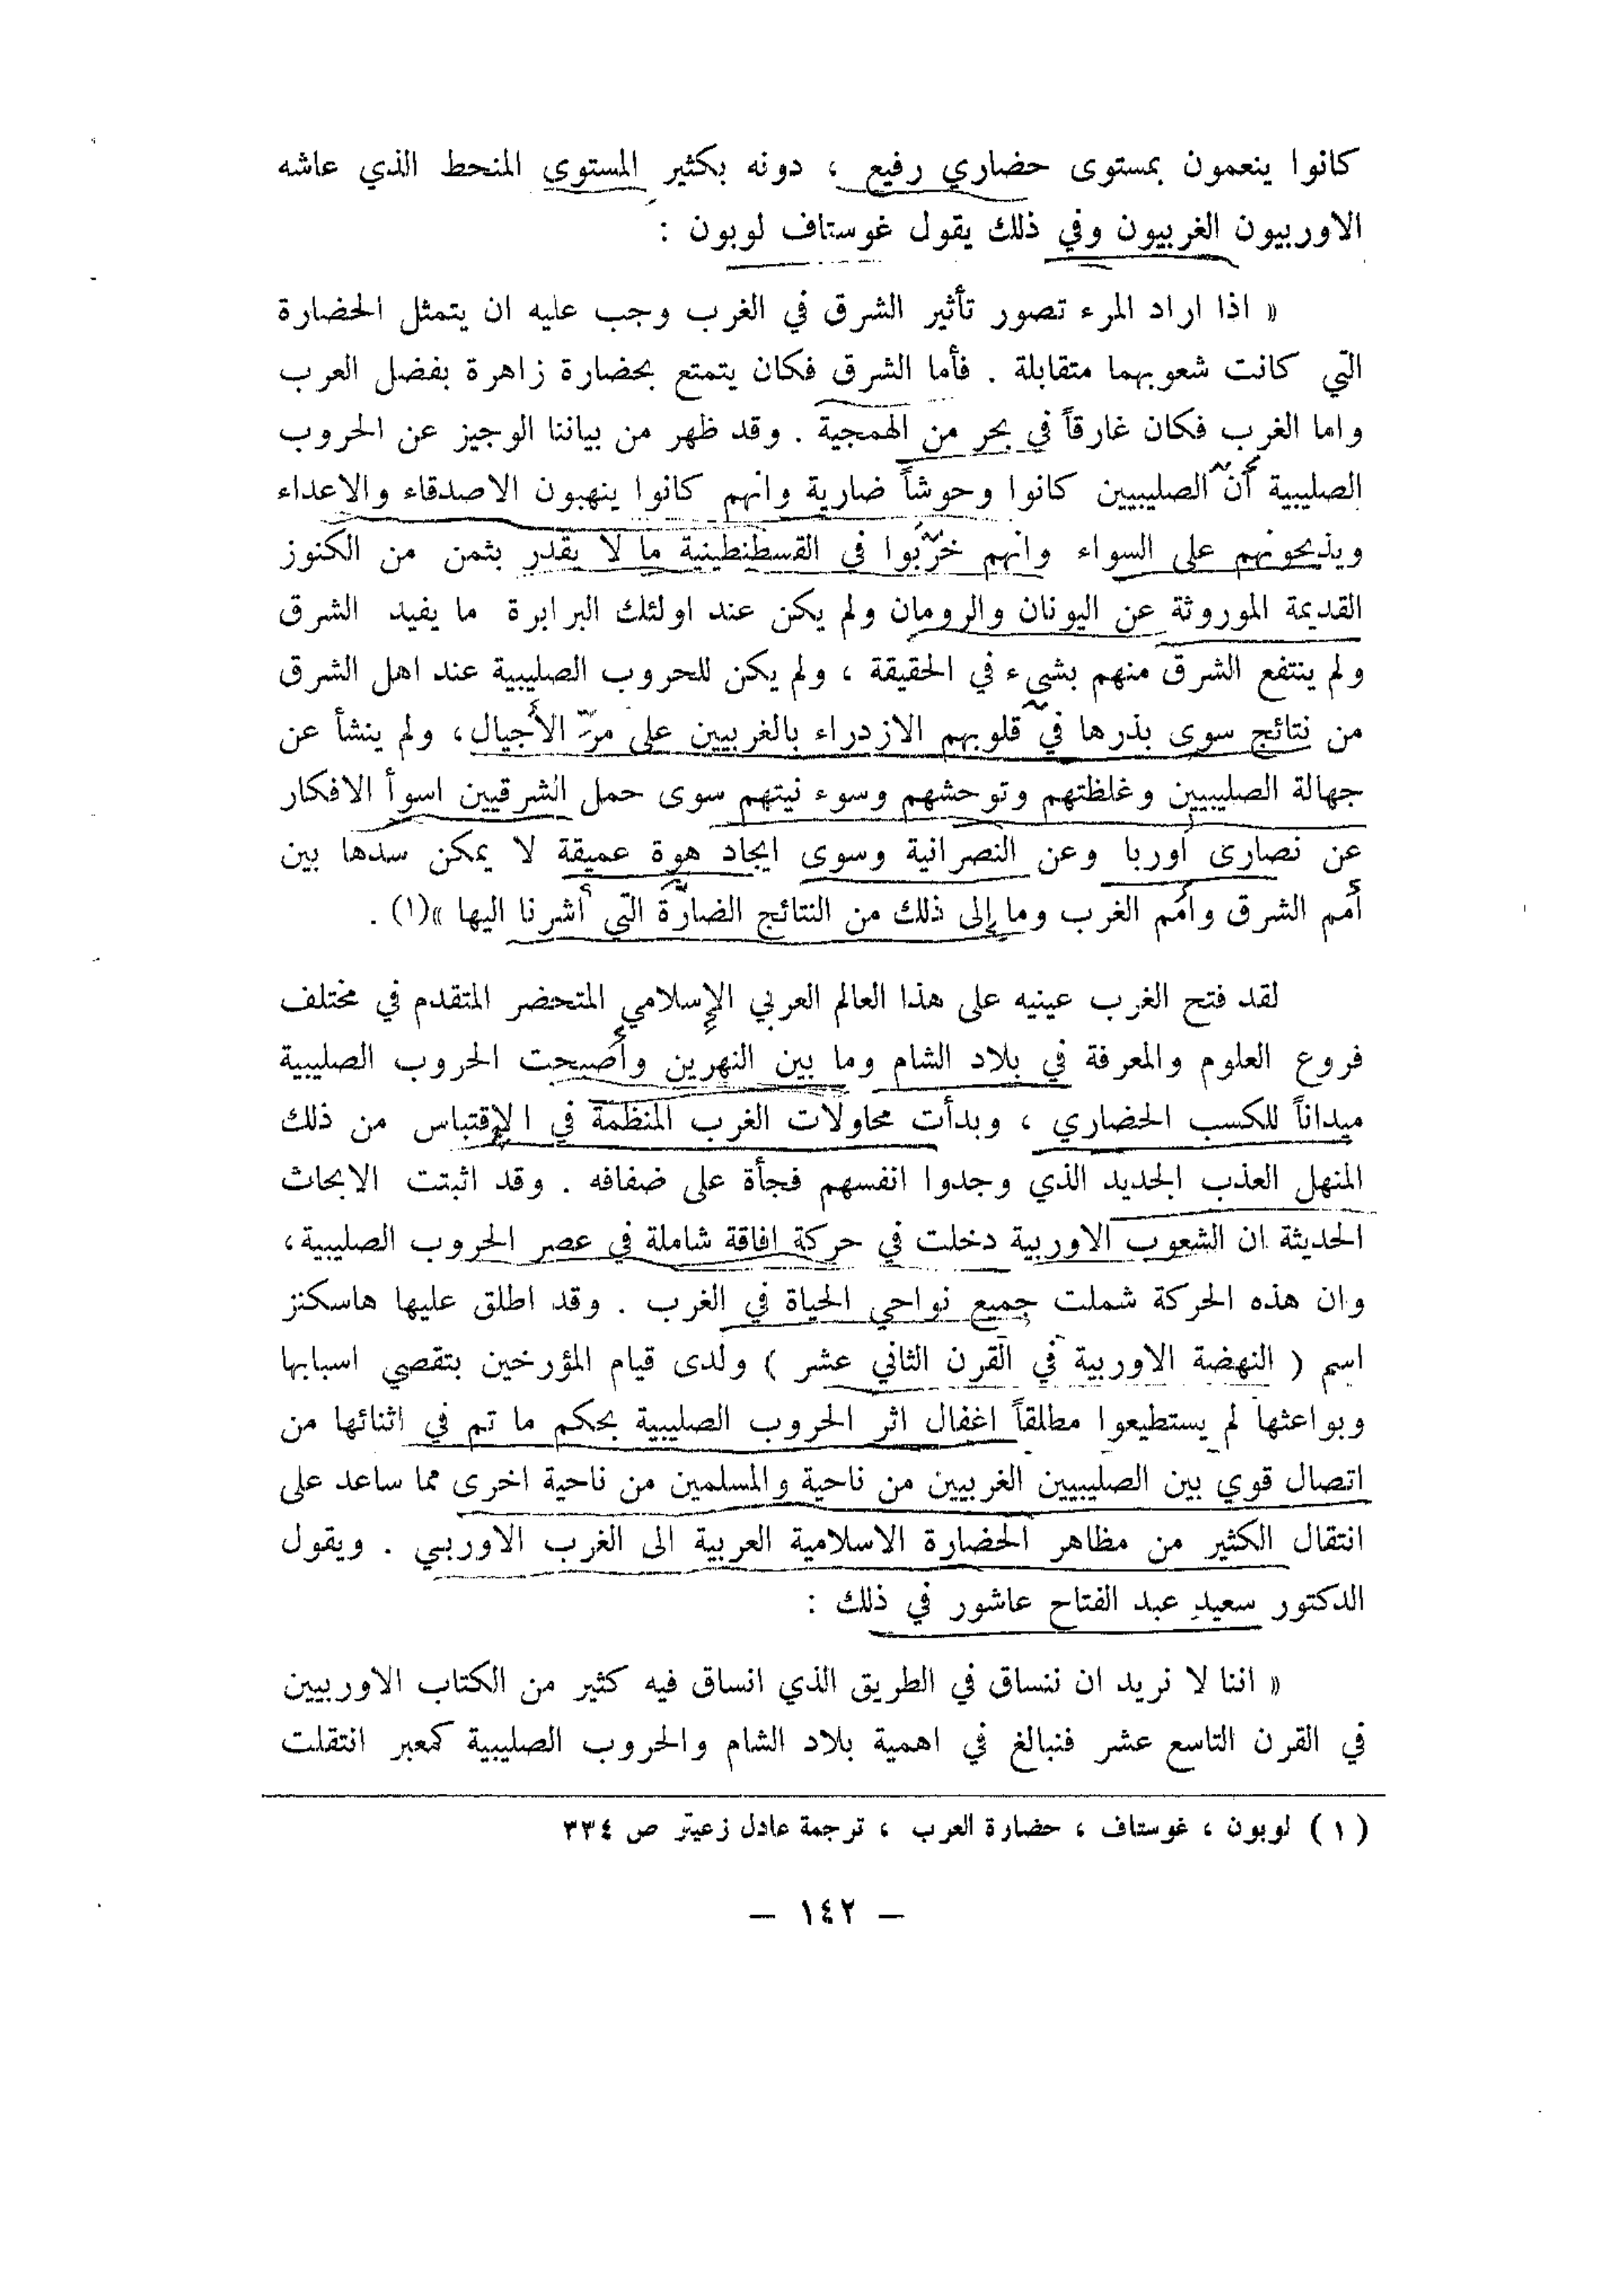 كانوا ينعمون بمستوى حضاري رفيع ، دونه بكثير المستوى المنحط الذي عاشه
الاوربيون الغربيون وفي ذلك يقول غوستاف لوبون :
« اذا اراد المرء تصور تأثير الشرق في الغرب وجب عليه ان يتمثل الحضارة
التي كانت شعوبهما متقابلة . فأما الشرق فكان يتمتع بحضارة زاهرة بفضل العرب
واما الغرب فكان غارقاً في بحر من الهمجية . وقد ظهر من بياننا الوجيز عن الحروب
الصليبية أنّ الصليبيين كانوا وحوشاً ضارية وانهم كانوا ينهبون الاصدقاء والاعداء
ويذبحونهم على السواء وانهم خرّبوا في القسطنطينية ما لا يقدر بثمن من الكنوز
القديمة الموروثة عن اليونان والرومان ولم يكن عند اولئك البرابرة ما يفيد الشرق
ولم ينتفع الشرق منهم بشيء في الحقيقة ، ولم يكن للحروب الصليبية عند اهل الشرق
من نتائج سوى بذرها في قلوبهم الازدراء بالغربيين على مرّ الأجيال، ولم ينشأ عن
جهالة الصليبيين وغلظتهم وتوحشهم وسوء نيتهم سوى حمل الشرقيين اسوأ الافكار
عن نصارى أوربا وعن النصرانية وسوى ايجاد هوة عميقة لا يمكن سدها بين
أمم الشرق وأمم الغرب وما إلى ذلك من النتائج الضارّة التي أشرنا اليها »(١) .
لقد فتح الغرب عينيه على هذا العالم العربي الإسلامي المتحضر المتقدم في مختلف
فروع العلوم والمعرفة في بلاد الشام وما بين النهرين وأصبحت الحروب الصليبية
ميداناً للكسب الحضاري ، وبدأت محاولات الغرب المنظمة في الإقتباس من ذلك
المنهل العذب الجديد الذي وجدوا انفسهم فجأة على ضفافه . وقد اثبتت الابحاث
الحديثة ان الشعوب الاوربية دخلت في حركة افاقة شاملة في عصر الحروب الصليبية ،
وان هذه الحركة شملت جميع نواحي الحياة في الغرب . وقد اطلق عليها هاسكنز
اسم ( النهضة الاوربية في القرن الثاني عشر ) ولدى قيام المؤرخين بتقصي اسبابها
وبواعثها لم يستطيعوا مطلقاً اغفال اثر الحروب الصليبية بحكم ما تم في اثنائها من
اتصال قوي بين الصليبيين الغربيين من ناحية والمسلمين من ناحية اخرى مما ساعد على
انتقال الكثير من مظاهر الحضارة الاسلامية العربية الى الغرب الاوربي . ويقول
الدكتور سعيد عبد الفتاح عاشور في ذلك :
« اننا لا نريد ان ننساق في الطريق الذي انساق فيه كثير من الكتاب الاوربيين
في القرن التاسع عشر فنبالغ في اهمية بلاد الشام والحروب الصليبية كمعبر انتقلت
( ١ ) لوبون ، غوستاف ، حضارة العرب ، ترجمة عادل زعيتر ص ٣٣٤
— ١٤٢ —